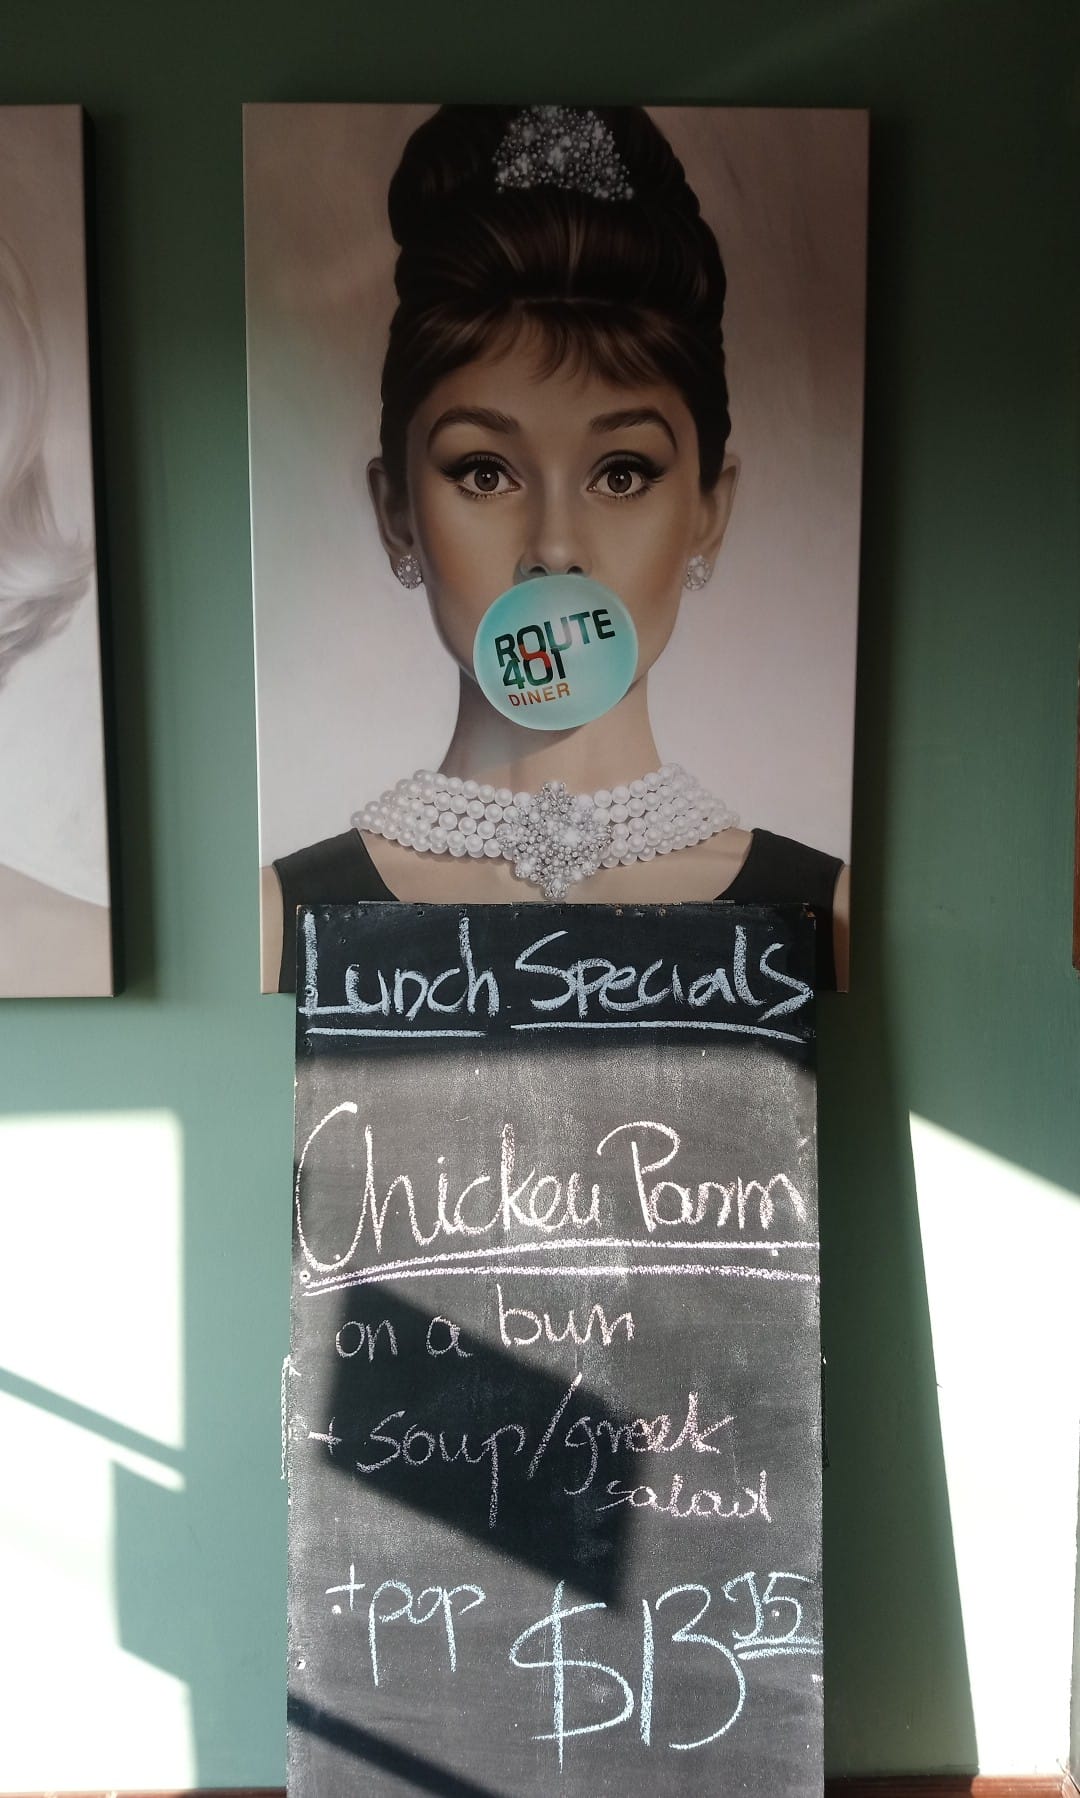 ROUTE
401
DINER
Lunch Specials
Chicken Parm
on a bun
+ soup/greek
salad
+pop $13.95